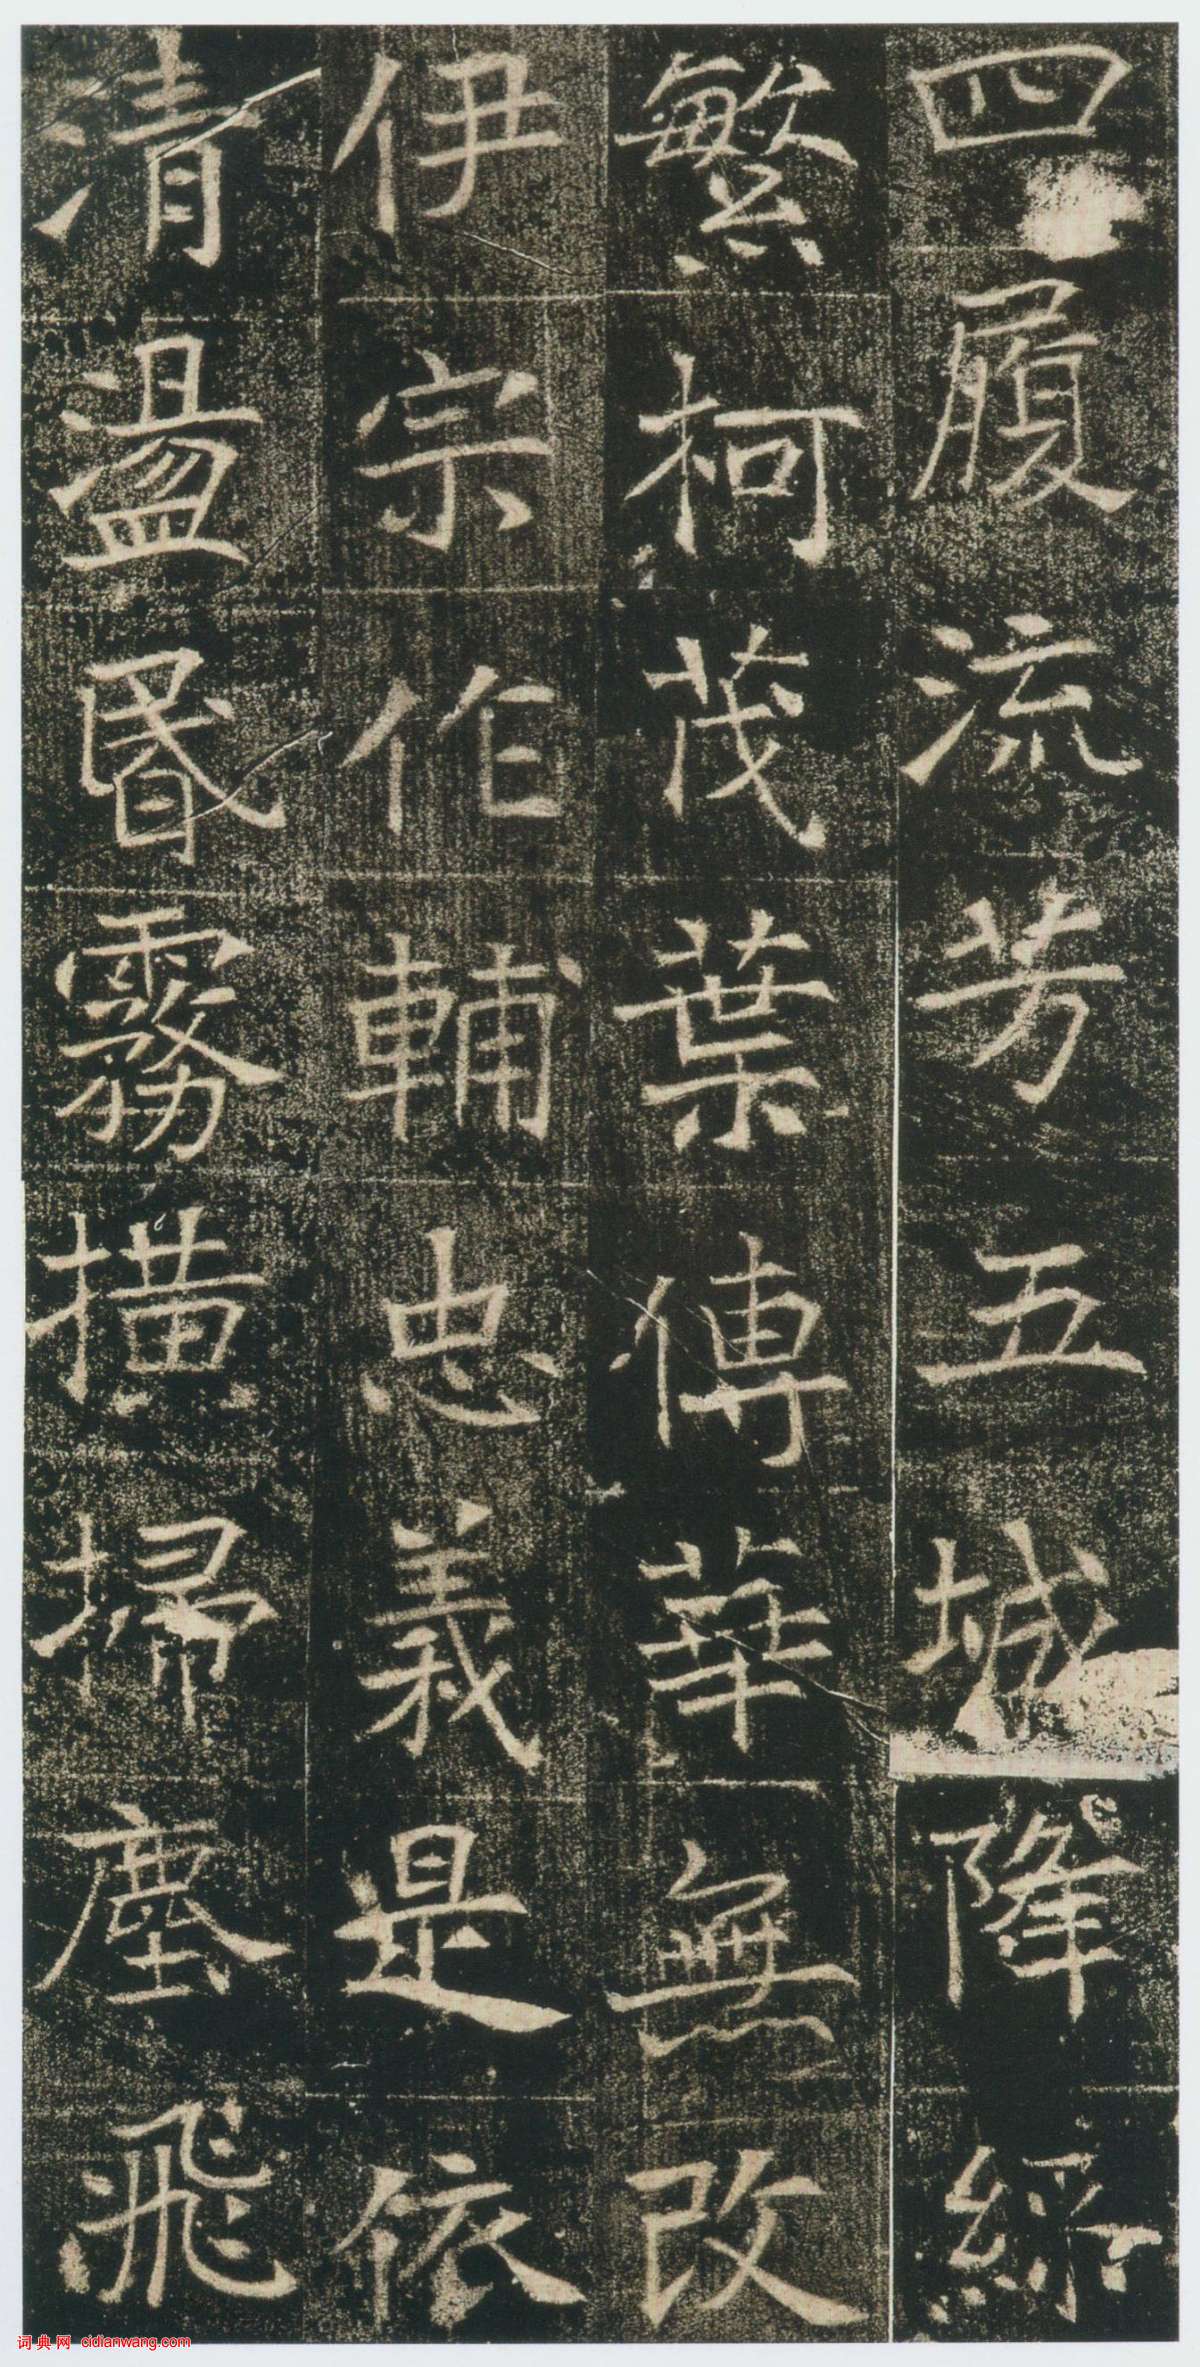 四履流芳五城降綵
繁柯茂葉傳華無改
伊宗作輔忠義是依
清盪昬霧撗掃塵飛
词典网 cidianwang.com